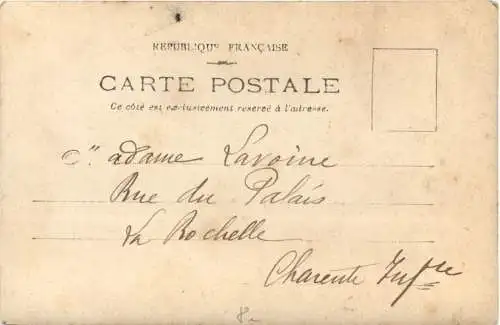 REPUBLIQUE FRANÇAISE
CARTE POSTALE
Ce côté est exclusivement reservé à l'adresse.
Madame Lavoine
Rue du Palais
La Rochelle
Charente Infre